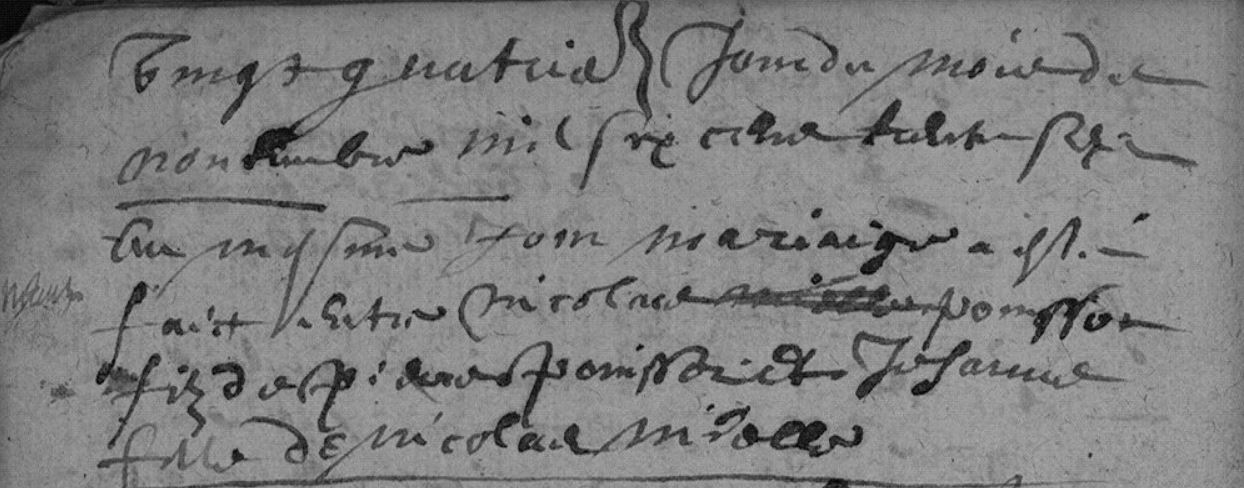 vingt quatrie jour du mois de
nouembre mil six cens trente six
Au mesme jour mariaige a esté
faict entre nicolas poinssot
filz de pierre poinssot et Jehanne
fille de nicolas mielle